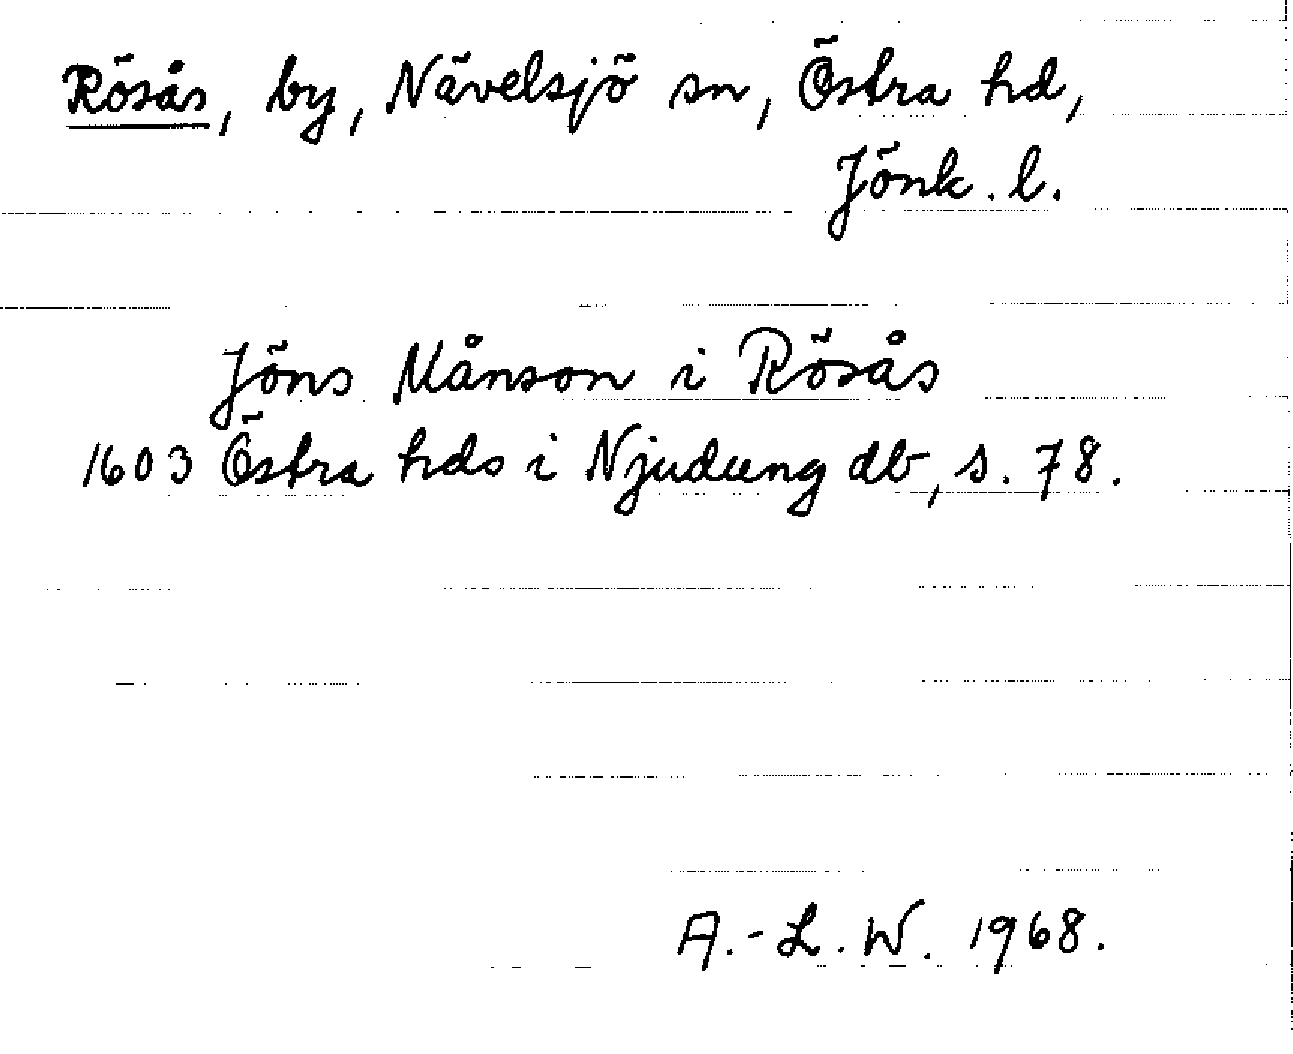 Rösås, by, Nävelsjö sn, Östra hd,
Jönk. l.
Jöns Månson i Rösås
1603 Östra hds i Njudung db, s. 78.
A.-L. W. 1968.